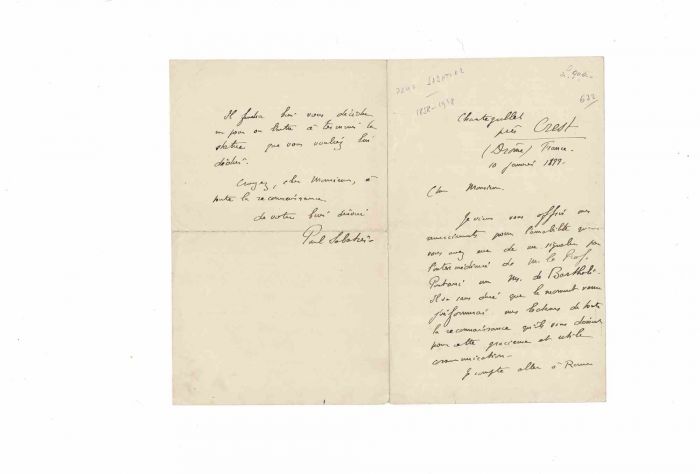 PAUL SABATIER
1858-1928
622
Chantegrillet
près Crest
(Drôme) France -
10 janvier 1899.
Cher Monsieur,
Je viens vous offrir mes
remerciements pour l'amabilité que
vous avez eue de me signaler par
l'intermédiaire de M. le Prof.
un Ms. de Barthole.
Il va sans dire que le moment venu
j'informerai mes lecteurs de toute
la reconnaissance qu'ils vous doivent
pour cette gracieuse et utile
communication -
Je compte aller à Rome
Il faudra bien vous décider
un jour ou l'autre à terminer la
que vous vouliez lui
dédier.
Croyez, cher Monsieur, à
toute la reconnaissance
de votre bien dévoué
Paul Sabatier -